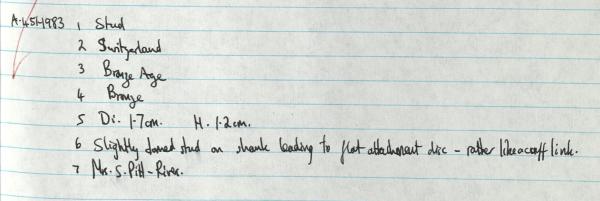 A.45.1983 1 Stud
2 Switzerland
3 Bronze Age
4 Bronze
5 Di. 1.7cm. H. 1.2cm.
6 Slightly domed stud on shank leading to flat attachment disc - rather like a cuff link.
7 Mr. S. Pitt-River.